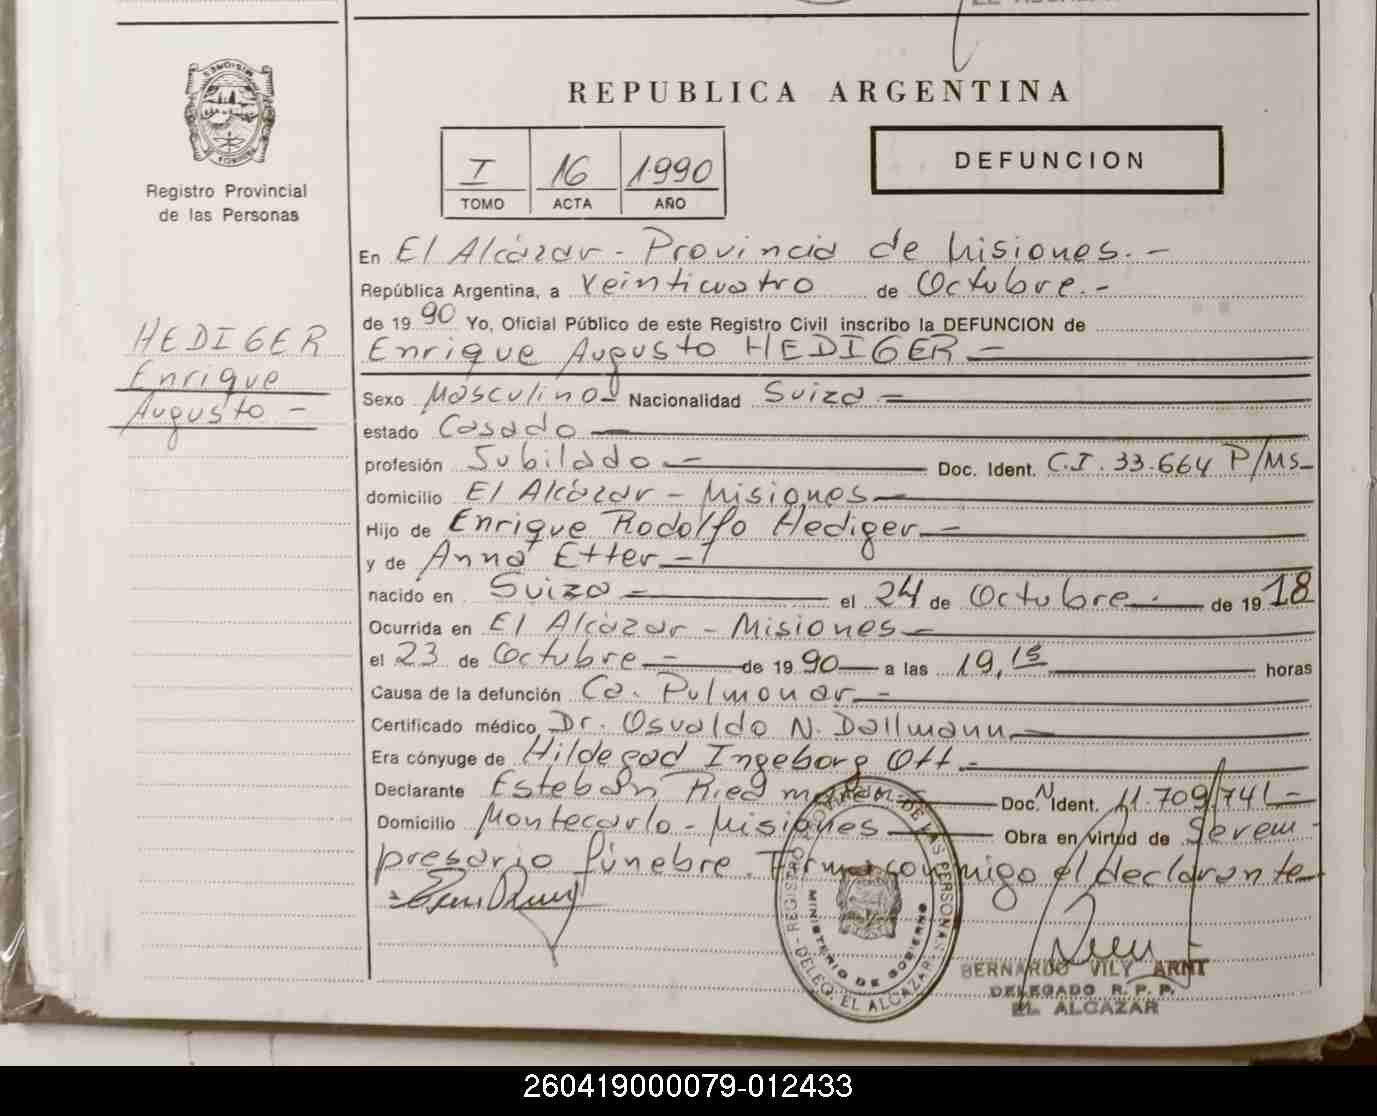 REPUBLICA ARGENTINA
MISIONES
Registro Provincial
de las Personas
I 16 1990
TOMO ACTA AÑO
DEFUNCION
En El Alcázar - Provincia de Misiones. -
República Argentina, a Veinticuatro de Octubre. -
de 1990 Yo, Oficial Público de este Registro Civil inscribo la DEFUNCION de
Enrique Augusto HEDIGER -
HEDIGER
Enrique
Augusto -
Sexo Masculino Nacionalidad Suiza -
estado Casado -
profesión Jubilado - Doc. Ident. C.I. 33.664 P/Ms-
domicilio El Alcázar - Misiones -
Hijo de Enrique Rodolfo Hediger -
y de Anna Etter -
nacido en Suiza - el 24 de Octubre - de 1918
Ocurrida en El Alcázar - Misiones -
el 23 de Octubre - de 1990 - a las 19,15 horas
Causa de la defunción Ca. Pulmonar -
Certificado médico Dr. Osvaldo N. Dallmann -
Era cónyuge de Hildegad Ingeborg Ott -
Declarante Esteban Doc. Ident. 11.709.741 -
Domicilio Montecarlo - Misiones - Obra en virtud de Ser em-
presario fúnebre. Firma conmigo el declarante -
REGISTRO PROVINCIAL DE LAS PERSONAS
MINISTERIO DE GOBIERNO
- DELEG. EL ALCAZAR -
BERNARDO VILY ARNT
DELEGADO R. P. P.
EL ALCAZAR
260419000079-012433